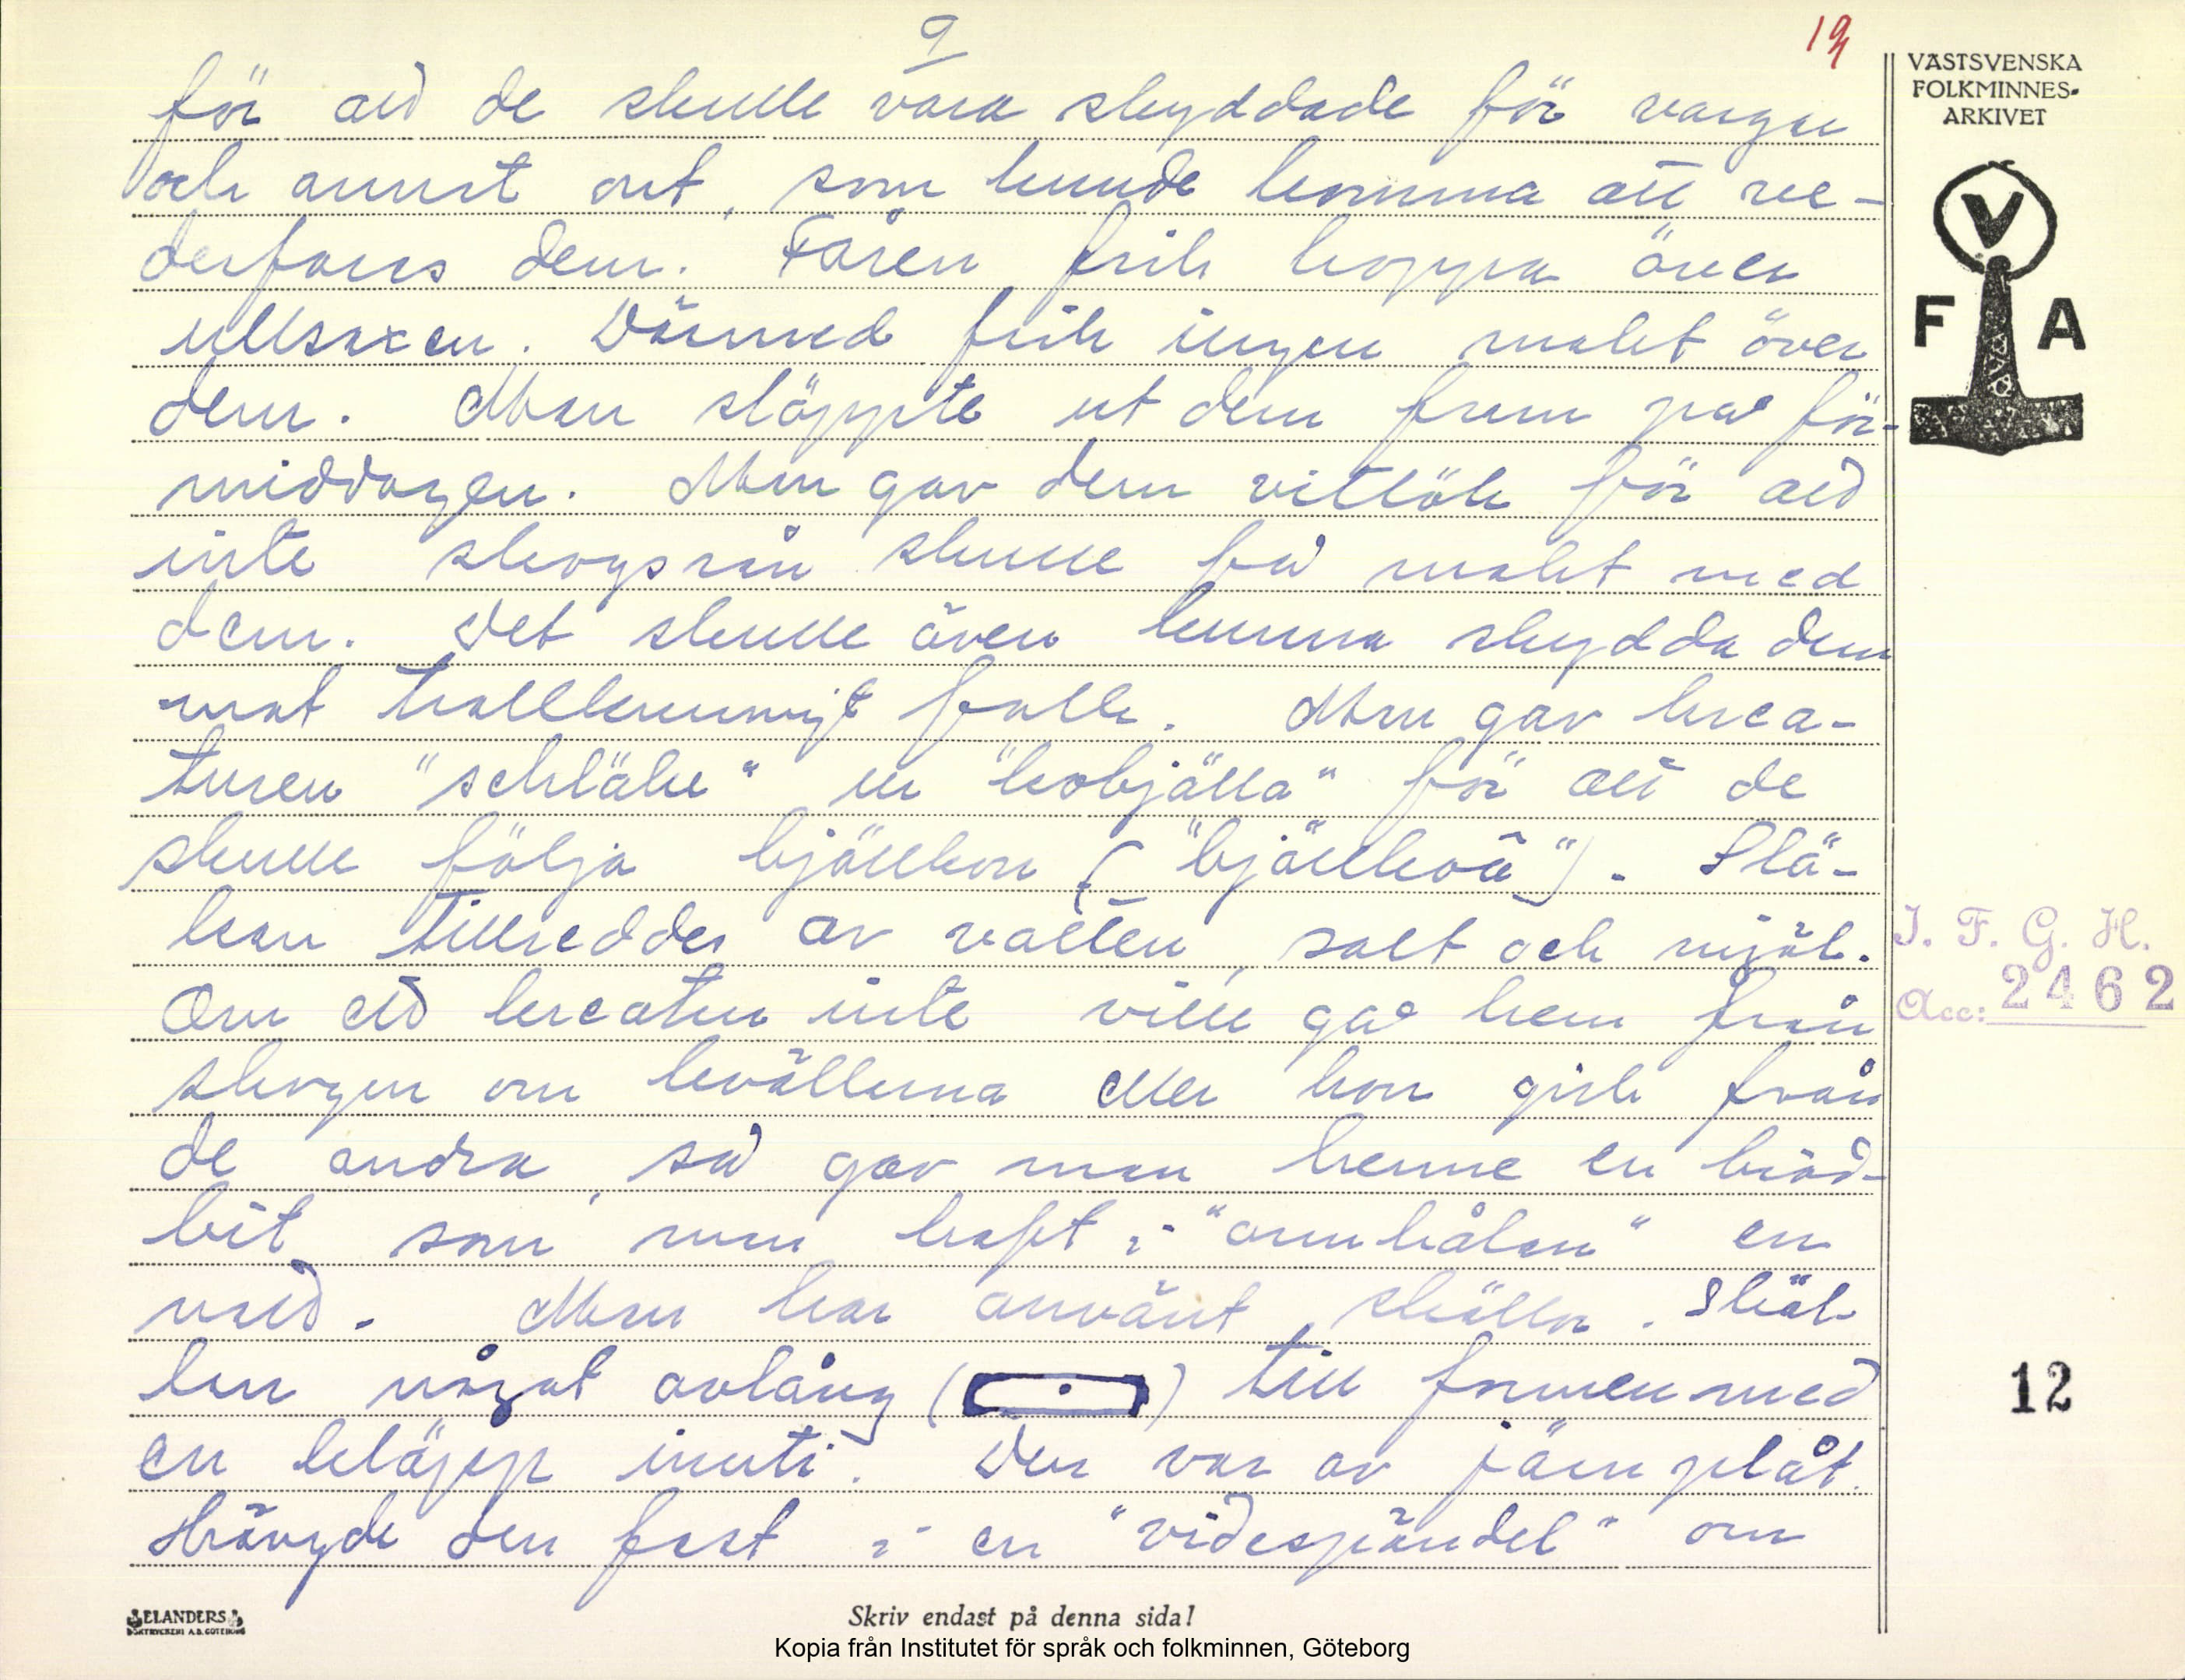 9
19
VÄSTSVENSKA
FOLKMINNES-
ARKIVET
V
F A
för att de skulle vara skyddade för vargar
och annat ont, som kunde komma att ve-
derfaras dem. Fåren fick hoppa över
ullsaxen. Därmed fick ingen makt över
dem. Man släppte ut dem fram på för-
middagen. Man gav dem vitlök för att
inte skogsrån skulle få makt med
dem. Det skulle även kunna skydda dem
mot trollkunnigt folk. Man gav krea-
turen "schläke" ur "kobjälla" för att de
skulle följa bjällkon ("bjällkoa"). Slä-
kan tillreddes av vatten, salt och mjöl.
Om ett kreatur inte ville gå hem från
skogen om kvällarna eller hon gick från
de andra, så gav man henne en bröd-
bit som man haft i "armhålan" en
natt. Man har använt skällor. Skäl-
lan något avlång ( ) till formen med
en kläpp inuti. Den var av järnplåt.
Hängde den fast i en "videspändel" om
I. F. G. H.
Acc: 2462
12
ELANDERS
BOKTRYCKERI A.B. GÖTEBORG
Skriv endast på denna sida!
Kopia från Institutet för språk och folkminnen, Göteborg